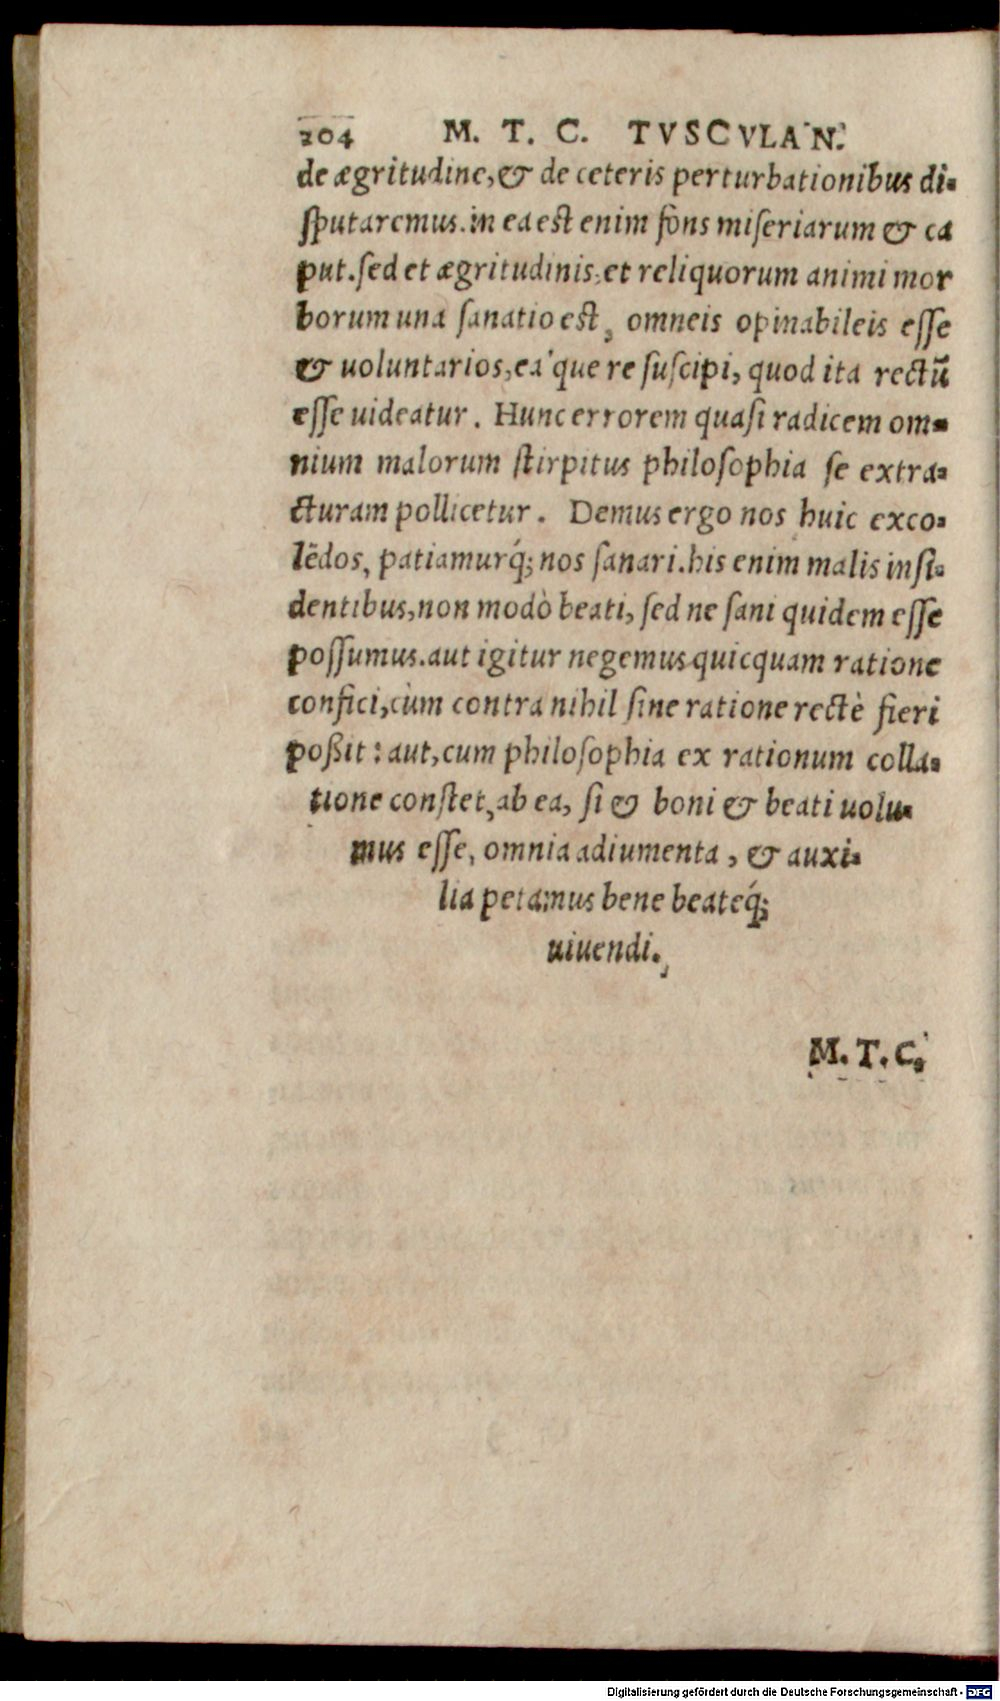 204 M. T. C. TVSCVLAN.
de ægritudine, & de ceteris perturbationibus di-
ſputaremus. in ea est enim fons miſeriarum & ca
put. ſed et ægritudinis, et reliquorum animi mor
borum una ſanatio est, omneis opinabileis eſſe
& uoluntarios, ea'que re ſuſcipi, quod ita rectū
eſſe uideatur. Hunc errorem quaſi radicem om-
nium malorum ſtirpitus philoſophia ſe extra-
cturam pollicetur. Demus ergo nos huic exco-
lẽdos, patiamurq́; nos ſanari. his enim malis inſi-
dentibus, non modò beati, ſed ne ſani quidem eſſe
poſſumus. aut igitur negemus quicquam ratione
confici, cùm contra nihil ſine ratione rectè fieri
poßit: aut, cum philoſophia ex rationum colla-
tione conſtet, ab ea, ſi & boni & beati uolu-
mus eſſe, omnia adiumenta, & auxi-
lia petamus bene beateq́;
uiuendi.
M. T. C.
Digitalisierung gefördert durch die Deutsche Forschungsgemeinschaft - DFG